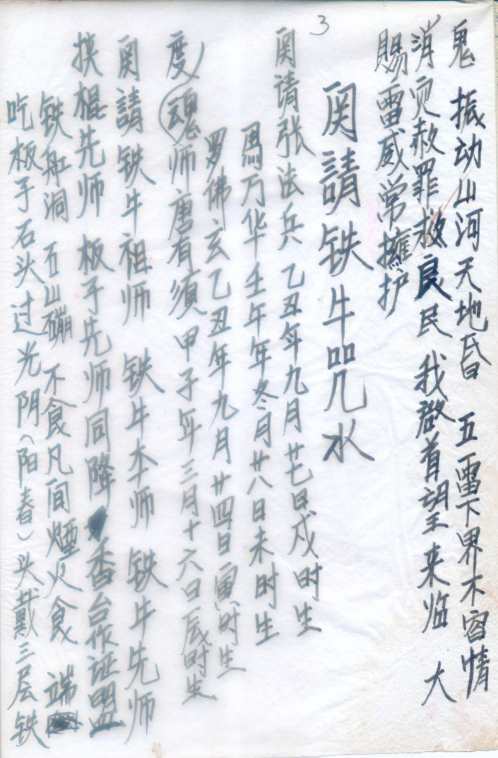 鬼 振动山河天地昏 五雷下界不容情
消灾赦罪救良民 我啟首望来临 大
賜雷威常擁护
3
関請铁牛咒水
関请张法兵 乙丑年九月廿七日戍时生
馬万华壬午年冬月廿八日未时生
罗佛玄乙丑年九月廿四日寅时生
度(魂)师唐有須甲子年三月十六日辰时生
関請铁牛祖师 铁牛本师 铁牛先师
挟棍先师 板子先师同降 香台作证盟
铁船洞 五山硼 不食凡间煙火食 端
吃板子石头过光阴(阳春)头戴三层铁